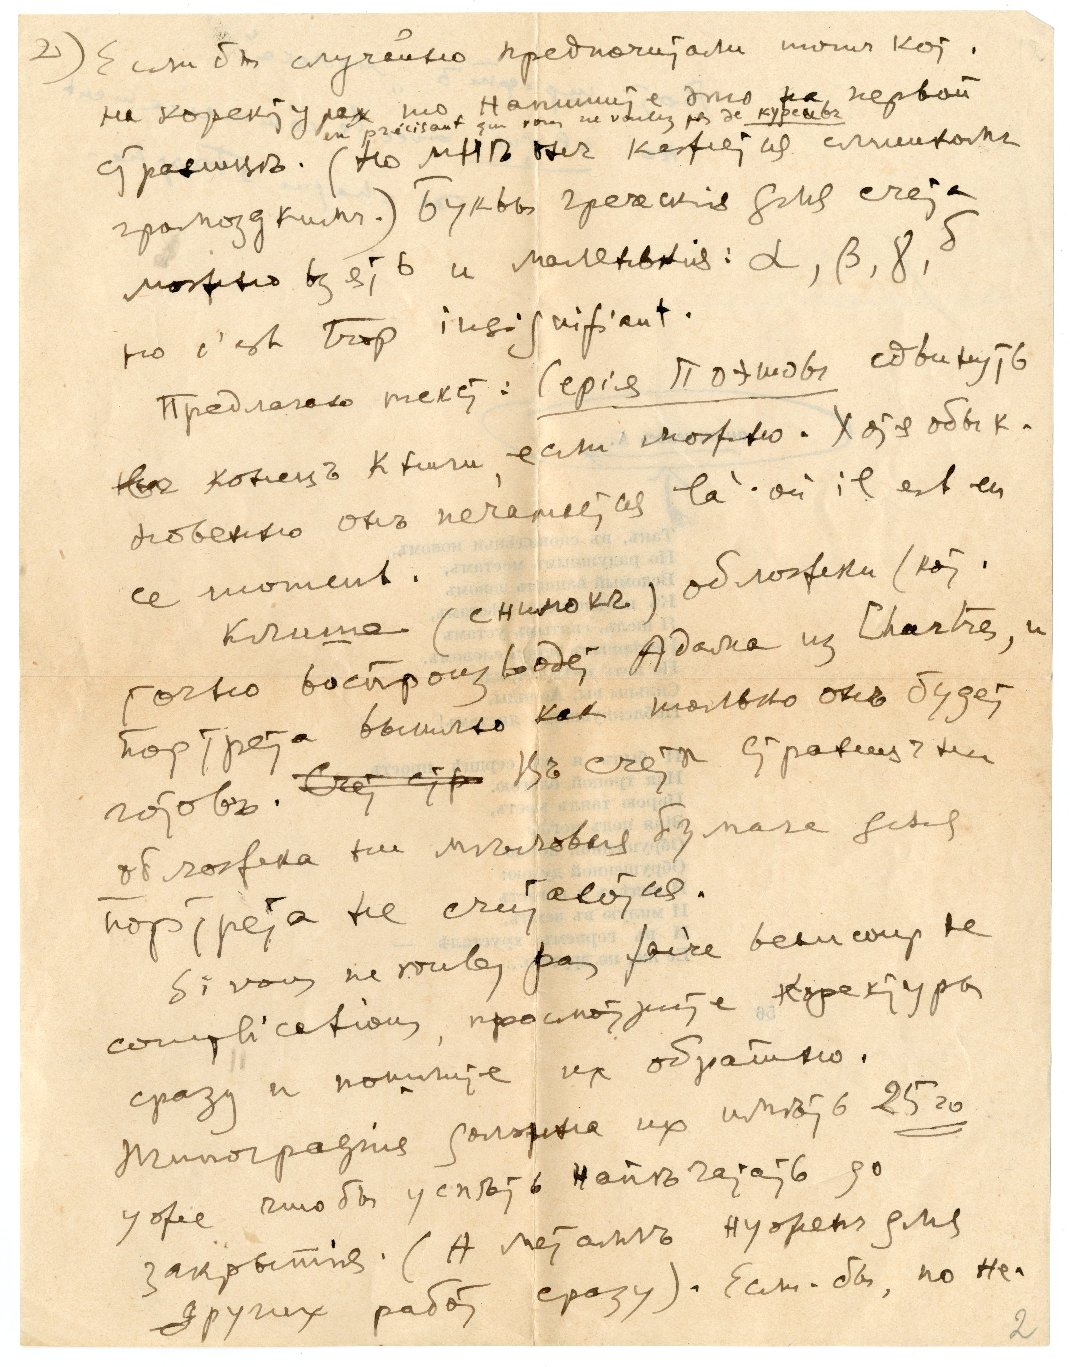 2) Если бъ случайно предпочитали точк кот.
на коректурах то напишите это на первой
en précisant que vous ne voulez pas de курсивъ
страницѣ. (Но мнѣ онъ кажется слишкомъ
громоздкимъ.) Буквы греческія для счета
можно взять и маленькія: α, β, γ, δ
но c'est trop insignifiant.
Предлагаю текст: Серія Поэтовъ сдвинуть
въ конецъ книги, если можно. Хотя обык-
новенно онъ печатается là où il est en
ce moment.
Клише (снимокъ) обложки (кот.
точно воспроизводет Адама из Chartres, и
портрета вышлю как только онъ будет
готовъ. Счет стр Въ счетъ страницъ ни
обложка ни мѣловая бумага для
портрета не считаются.
Si vous ne voulez pas faire beaucoup de
complications, просмотрите коректуры
сразу и пошлите их обратно.
Типографія должна их имѣть 25го
уже чтобы успѣть напѣчатать до
закрытія. (А металлъ нуженъ для
других работ сразу). Если-бы, по не-
2